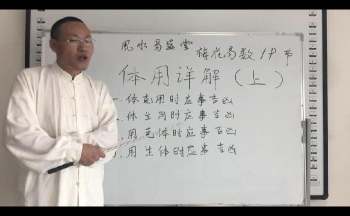 風水易盛堂 梅花易数19节
体用详解(上)
体克用时应事吉凶
体生用时应事吉凶
用克体时应事吉凶
用生体时应事吉凶